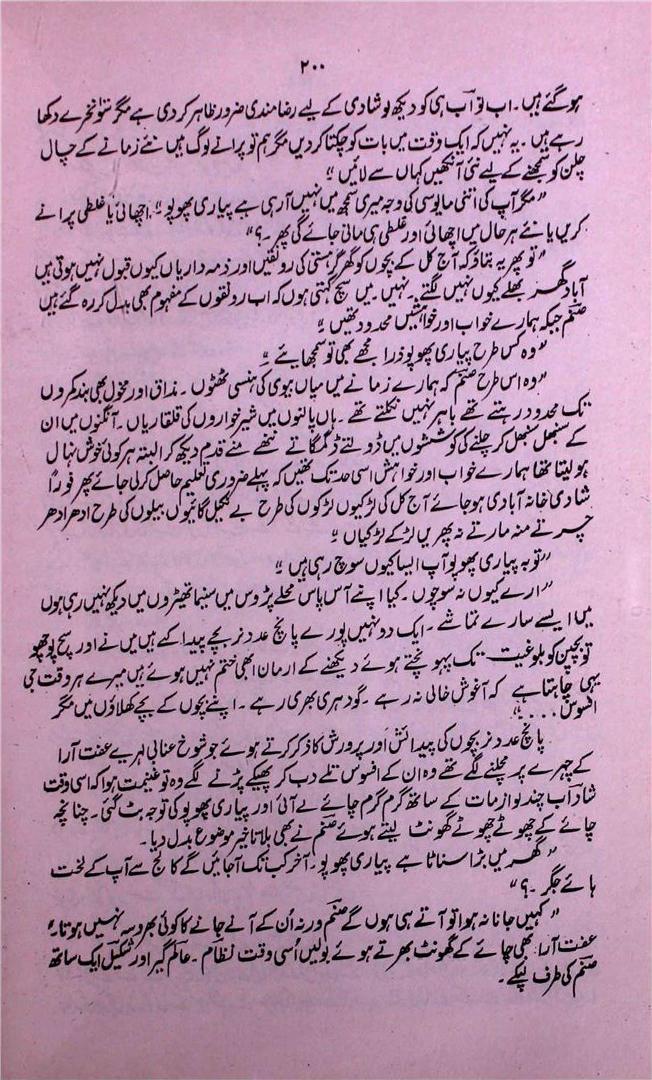 ۲۰۰
ہوگئے ہیں۔ اب تو آپ ہی کو دیکھ لو شادی کے لیے رضامندی ضرور ظاہر کر دی ہے مگر سَو نخرے دکھا
رہے ہیں۔ یہ نہیں کہ ایک وقت میں بات کو چکتا کر دیں مگر ہم تو پرانے لوگ ہیں نئے زمانے کے چال
چلن کو سمجھنے کے لیے نئی آنکھیں کہاں سے لائیں "
"مگر آپ کی اتنی مایوسی کی وجہ میری سمجھ میں نہیں آ رہی ہے پیاری پھوپو"۔ اچھائی یا غلطی پرانے
کریں یا نئے ہر حال میں اچھائی اور غلطی ہی مانی جائے گی پھر۔؟"
"تو پھر یہ بتاؤ کہ آج کل کے بچوں کو گھر گرہستی کی رونقیں اور ذمہ داریاں کیوں قبول نہیں ہوتی ہیں
آباد گھر بھلے کیوں نہیں لگتے۔ نہیں۔ میں سچ کہتی ہوں کہ اب رونقوں کے مفہوم بھی بدل کر رہ گئے ہیں
صنم جبکہ ہمارے خواب اور خواہشیں محدود تھیں "
"وہ کس طرح پیاری پھوپو ذرا مجھے بھی تو سمجھایئے "
"وہ اس طرح صنم کہ ہمارے زمانے میں میاں بیوی کی ہنسی ٹھٹوں۔ مذاق اور مخول بھی بند کمروں
تک محدود رہتے تھے باہر نہیں نکلتے تھے۔ ہاں پالنوں میں شیر خواروں کی قلقاریاں۔ آنگنوں میں ان
کے سنبھل سنبھل کر چلنے کی کوششوں میں ڈولتے ڈگمگاتے ننھے منے قدم دیکھ کر البتہ ہر کوئی خوش نہال
ہو لیتا تھا ہمارے خواب اور خواہش اسی حد تک تھیں کہ پہلے ضروری تعلیم حاصل کر لی جائے پھر فوراً
شادی خانہ آبادی ہو جائے آج کل کی لڑکیوں لڑکوں کی طرح بے نکیل گائیوں بیلوں کی طرح ادھر ادھر
چرتے منہ مارتے نہ پھریں لڑکے لڑکیاں "
"توبہ پیاری پھوپو آپ ایسا کیوں سوچ رہی ہیں "
"ارے کیوں نہ سوچوں۔ کیا اپنے آس پاس محلے پڑوس میں سنیما تھیٹروں میں دیکھ نہیں رہی ہوں
میں ایسے سارے تماشے۔ ایک دو نہیں پورے پانچ عدد نر بچے پیدا کئے ہیں میں نے اور سچ پوچھو
تو بچپن کو بلوغیت تک پہونچتے ہوئے دیکھنے کے ارمان ابھی ختم نہیں ہوئے ہیں میرے ہر وقت جی
یہی چاہتا ہے کہ آغوش خالی نہ رہے۔ گود ہری بھری رہے۔ اپنے بچوں کے بچے کھلاؤں میں مگر
افسوس ...."
پانچ عدد نر بچوں کی پیدائش اور پرورش کا ذکر کرتے ہوئے جو شوخ عنابی لہریے عفت آرا
کے چہرے پر مچلنے لگے تھے وہ ان کے افسوس تلے دب کر پھیکے پڑنے لگے وہ تو غنیمت ہوا کہ اسی وقت
شاداب چند لوازمات کے ساتھ گرم گرم چائے لے آئی اور پیاری پھوپو کی توجہ بٹ گئی۔ چنانچہ
چائے کے چھوٹے چھوٹے گھونٹ لیتے ہوئے صنم نے بھی بلا تاخیر موضوع بدل دیا۔
"گھر میں بڑا سناٹا ہے پیاری پھوپو۔ آخر کب تک آجائیں گے کالج سے آپ کے لخت
ہائے جگر۔؟"
"کہیں جانا نہ ہوا تو آتے ہی ہوں گے صنم ورنہ اُن کے آنے جانے کا کوئی بھروسہ نہیں ہوتا۔"
عفت آرا بھی چائے کے گھونٹ بھرتے ہوئے بولیں اُسی وقت نظام۔ عالم گیر اور شکیل ایک ساتھ
صنم کی طرف لپکے۔